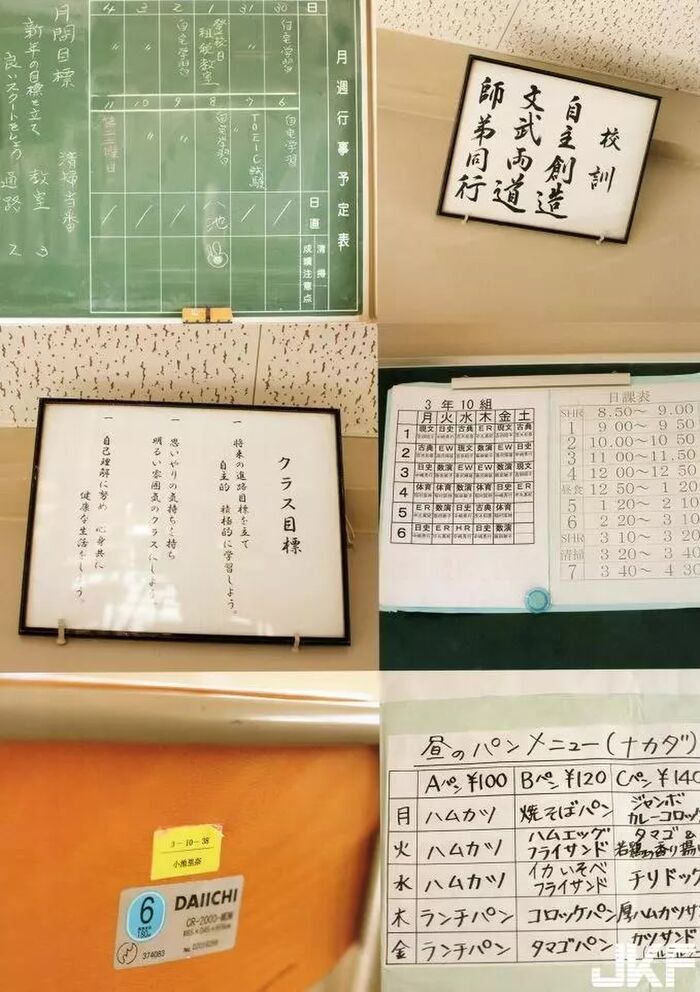 月週行事予定表
日
日直
清掃
成績注意点
30
31
1
2
3
4
自宅学習
登校日
租税教室
自宅学習
〃
〃
6
7
8
9
10
11
自宅学習
TOEIC試験
自宅学習
〃
〃
第二土曜日
月間目標
新年の目標を立て、
良いスタートをしよう
清掃当番
教室 3
通路 2
校訓
自主創造
文武両道
師弟同行
クラス目標
一 将来の進路目標を立て
自主的 積極的に学習しよう。
一 思いやりの気持ちを持ち
明るい雰囲気のクラスにしよう。
一 自己理解に努め 心身共に
健康な生活をしよう。
3年10組
月 火 水 木 金 土
1 現文 日史 古典 ER 現文 古典
2 古典 EW EW 数演 日史 EW
3 日史 EW EW EW 数演 現文
4 体育 体育 数演 体育 日史 ER
5 ER 数演 日史 古典 体育
6 日史 ER HR 日史 数演
日課表
SHR 8.50～ 9.00
1 9 00～ 9 50
2 10.00～10 50
3 11 00～11.50
4 12 00～12 50
昼食 12 50～ 1 20
5 1 20～ 2 10
6 2 20～ 3 0
SHR 3 10～ 3 2
清掃 3 20～ 3 4
7 3 40～ 4 30
3-10-38
小池里奈
6
DAIICHI
CR-2000-MDW
374083
昼のパンメニュー(ナカダ)
Aパン ¥100 Bパン ¥120 Cパン ¥140
月 ハムカツ 焼そばパン ジャンボカレーコロッケ
火 ハムカツ ハムエッグフライサンド タマゴ&若鶏の香り揚
水 ハムカツ イカいそべフライサンド チリドッグ
木 ランチパン コロッケパン 厚ハムカツサン
金 ランチパン タマゴパン カツサンド
JKF